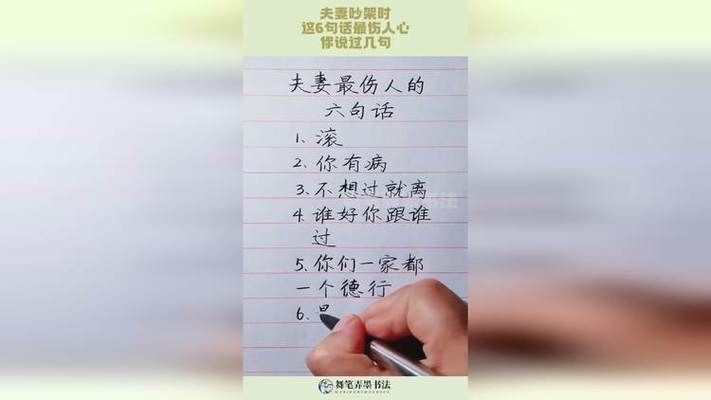 夫妻吵架时
这6句话最伤人心
你说过几句
夫妻最伤人的
六句话
1. 滚
2. 你有病
3. 不想过就离
4. 谁好你跟谁
过
5. 你们一家都
一个德行
6.
舞笔弄墨书法